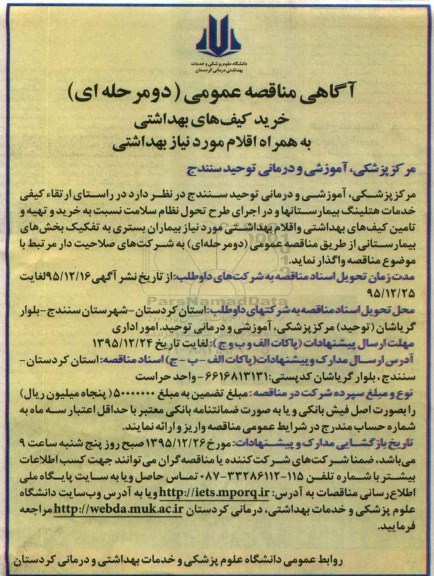 دانشگاه علوم پزشکی و خدمات
بهداشتی درمانی کردستان
آگاهی مناقصه عمومی (دومرحله ای)
خرید کیف‌های بهداشتی
به همراه اقلام مورد نیاز بهداشتی
مرکز پزشکی، آموزشی و درمانی توحید سنندج
مرکز پزشکی، آموزشی و درمانی توحید سنندج در نظر دارد در راستای ارتقاء کیفی
خدمات هتلینگ بیمارستانها و در اجرای طرح تحول نظام سلامت نسبت به خرید و تهیه و
تامین کیف‌های بهداشتی واقلام بهداشتی مورد نیاز بیماران بستری به تفکیک بخش‌های
بیمارستانی از طریق مناقصه عمومی (دومرحله‌ای) به شرکت‌های صلاحیت دار مرتبط با
موضوع مناقصه واگذار نماید.
مدت زمان تحویل اسناد مناقصه به شرکت‌های داوطلب: از تاریخ نشر آگهی ۹۵/۱۲/۱۶ لغایت
۹۵/۱۲/۲۵
محل تحویل اسناد مناقصه به شرکتهای داوطلب: استان کردستان - شهرستان سنندج - بلوار
گریاشان (توحید) مرکز پزشکی، آموزشی و درمانی توحید. امور اداری
مهلت ارسال پیشنهادات (پاکات الف و ب و ج): لغایت تاریخ ۱۳۹۵/۱۲/۲۴
آدرس ارسال مدارک و پیشنهادات (پاکات الف - ب - ج) اسناد مناقصه: استان کردستان -
سنندج، بلوار گریاشان کدپستی: ۶۶۱۶۸۱۳۱۳۱ - واحد حراست
نوع و مبلغ سپرده شرکت در مناقصه: مبلغ تضمین به مبلغ ۵۰۰۰۰۰۰۰ (پنجاه میلیون ریال)
را بصورت اصل فیش بانکی و یا به صورت ضمانتنامه بانکی معتبر با حداقل اعتبار سه ماه به
شماره حساب مندرج در شرایط عمومی مناقصه واریز و ارائه نمایند.
تاریخ بازگشایی مدارک و پیشنهادات: مورخ ۱۳۹۵/۱۲/۲۶ صبح روز پنج شنبه ساعت ۹
می‌باشد، ضمنا شرکت‌های شرکت‌کننده یا مناقصه‌گران می‌توانند جهت کسب اطلاعات
بیشتر با شماره تلفن ۱۱۵-۳۳۲۸۶۱۱۲-۰۸۷ تماس حاصل ویا به سایت پایگاه ملی
اطلاع‌رسانی مناقصات به آدرس: http://iets.mporq.ir ویا به آدرس وب‌سایت دانشگاه
علوم پزشکی و خدمات بهداشتی، درمانی کردستان http://webda.muk.ac.ir مراجعه
فرمایید.
روابط عمومی دانشگاه علوم پزشکی و خدمات بهداشتی و درمانی کردستان
ParsNamadData